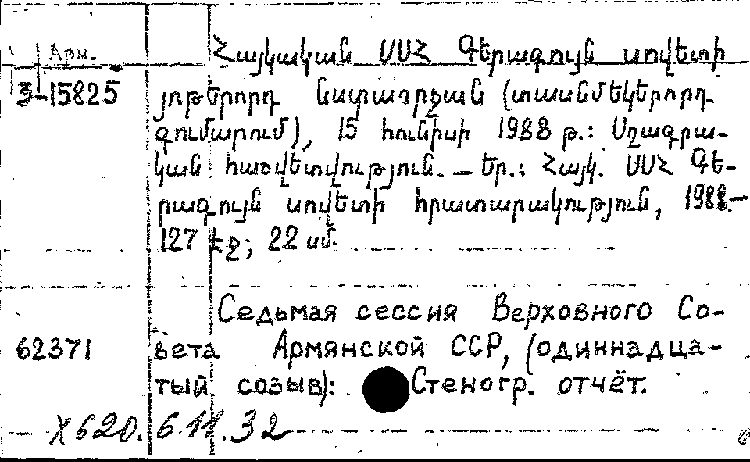 Арм. Հայկական ՍՍՀ Գերագույն սովետի
3-15825 յոթերորդ նստաշրջան (տասնմեկերորդ
գումարում), 15 հունիսի 1988 թ.: Սղագրա-
կան հաշվետվություն. – Եր.: Հայկ. ՍՍՀ Գե-
րագույն սովետի հրատարակություն, 1988.–
127 էջ; 22 սմ.
Седьмая сессия Верховного Со-
62371 вета Армянской ССР, (одиннадца-
тый созыв): Стеногр. отчёт.
X620.6.11.32